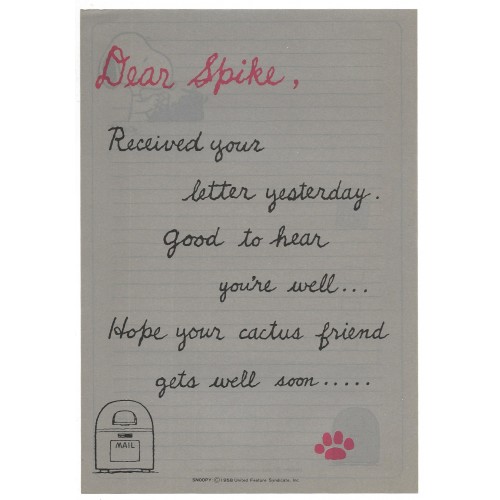 Dear Spike,
Received your
letter yesterday.
Good to hear
you're well...
Hope your cactus friend
gets well soon.....
MAIL
SNOOPY ©1958 United Feature Syndicate, Inc.